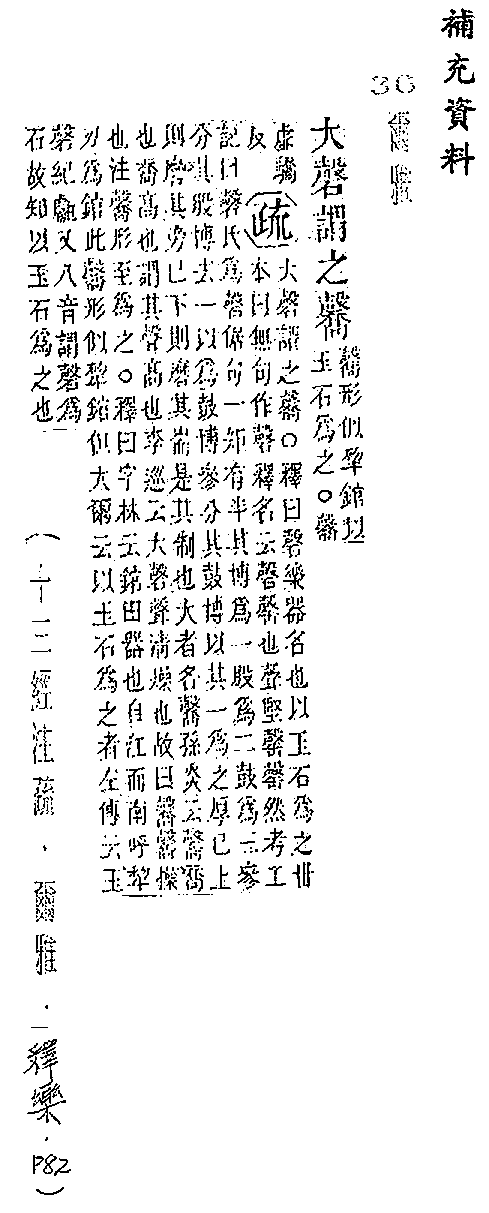 補充資料
36 爾雅
大磬謂之毊 毊形似犂錧以
玉石爲之○毊
虛驕
反 疏 大磬謂之毊○釋曰磬樂器名也以玉石爲之
本曰無句作磬釋名云磬罄也聲堅罄罄然考工
記曰磬氏爲磬倨句一矩有半其博爲一股爲二鼓爲三參
分其股博去一以爲鼓博參分其鼓博以其一爲之厚已上
則磨其旁已下則磨其耑是其制也大者名毊孫炎云毊喬
也喬高也謂其聲高也李巡云大磬聲清燥也故曰毊毊燥
也注毊形至爲之○釋曰字林云錧田器也自江而南呼犂
刃爲錧此毊形似犂錧但大爾云以玉石爲之者左傳云玉
磬紀甗又八音謂磬爲
石故知以玉石爲之也
(十三經注疏．爾雅．釋樂．P82)